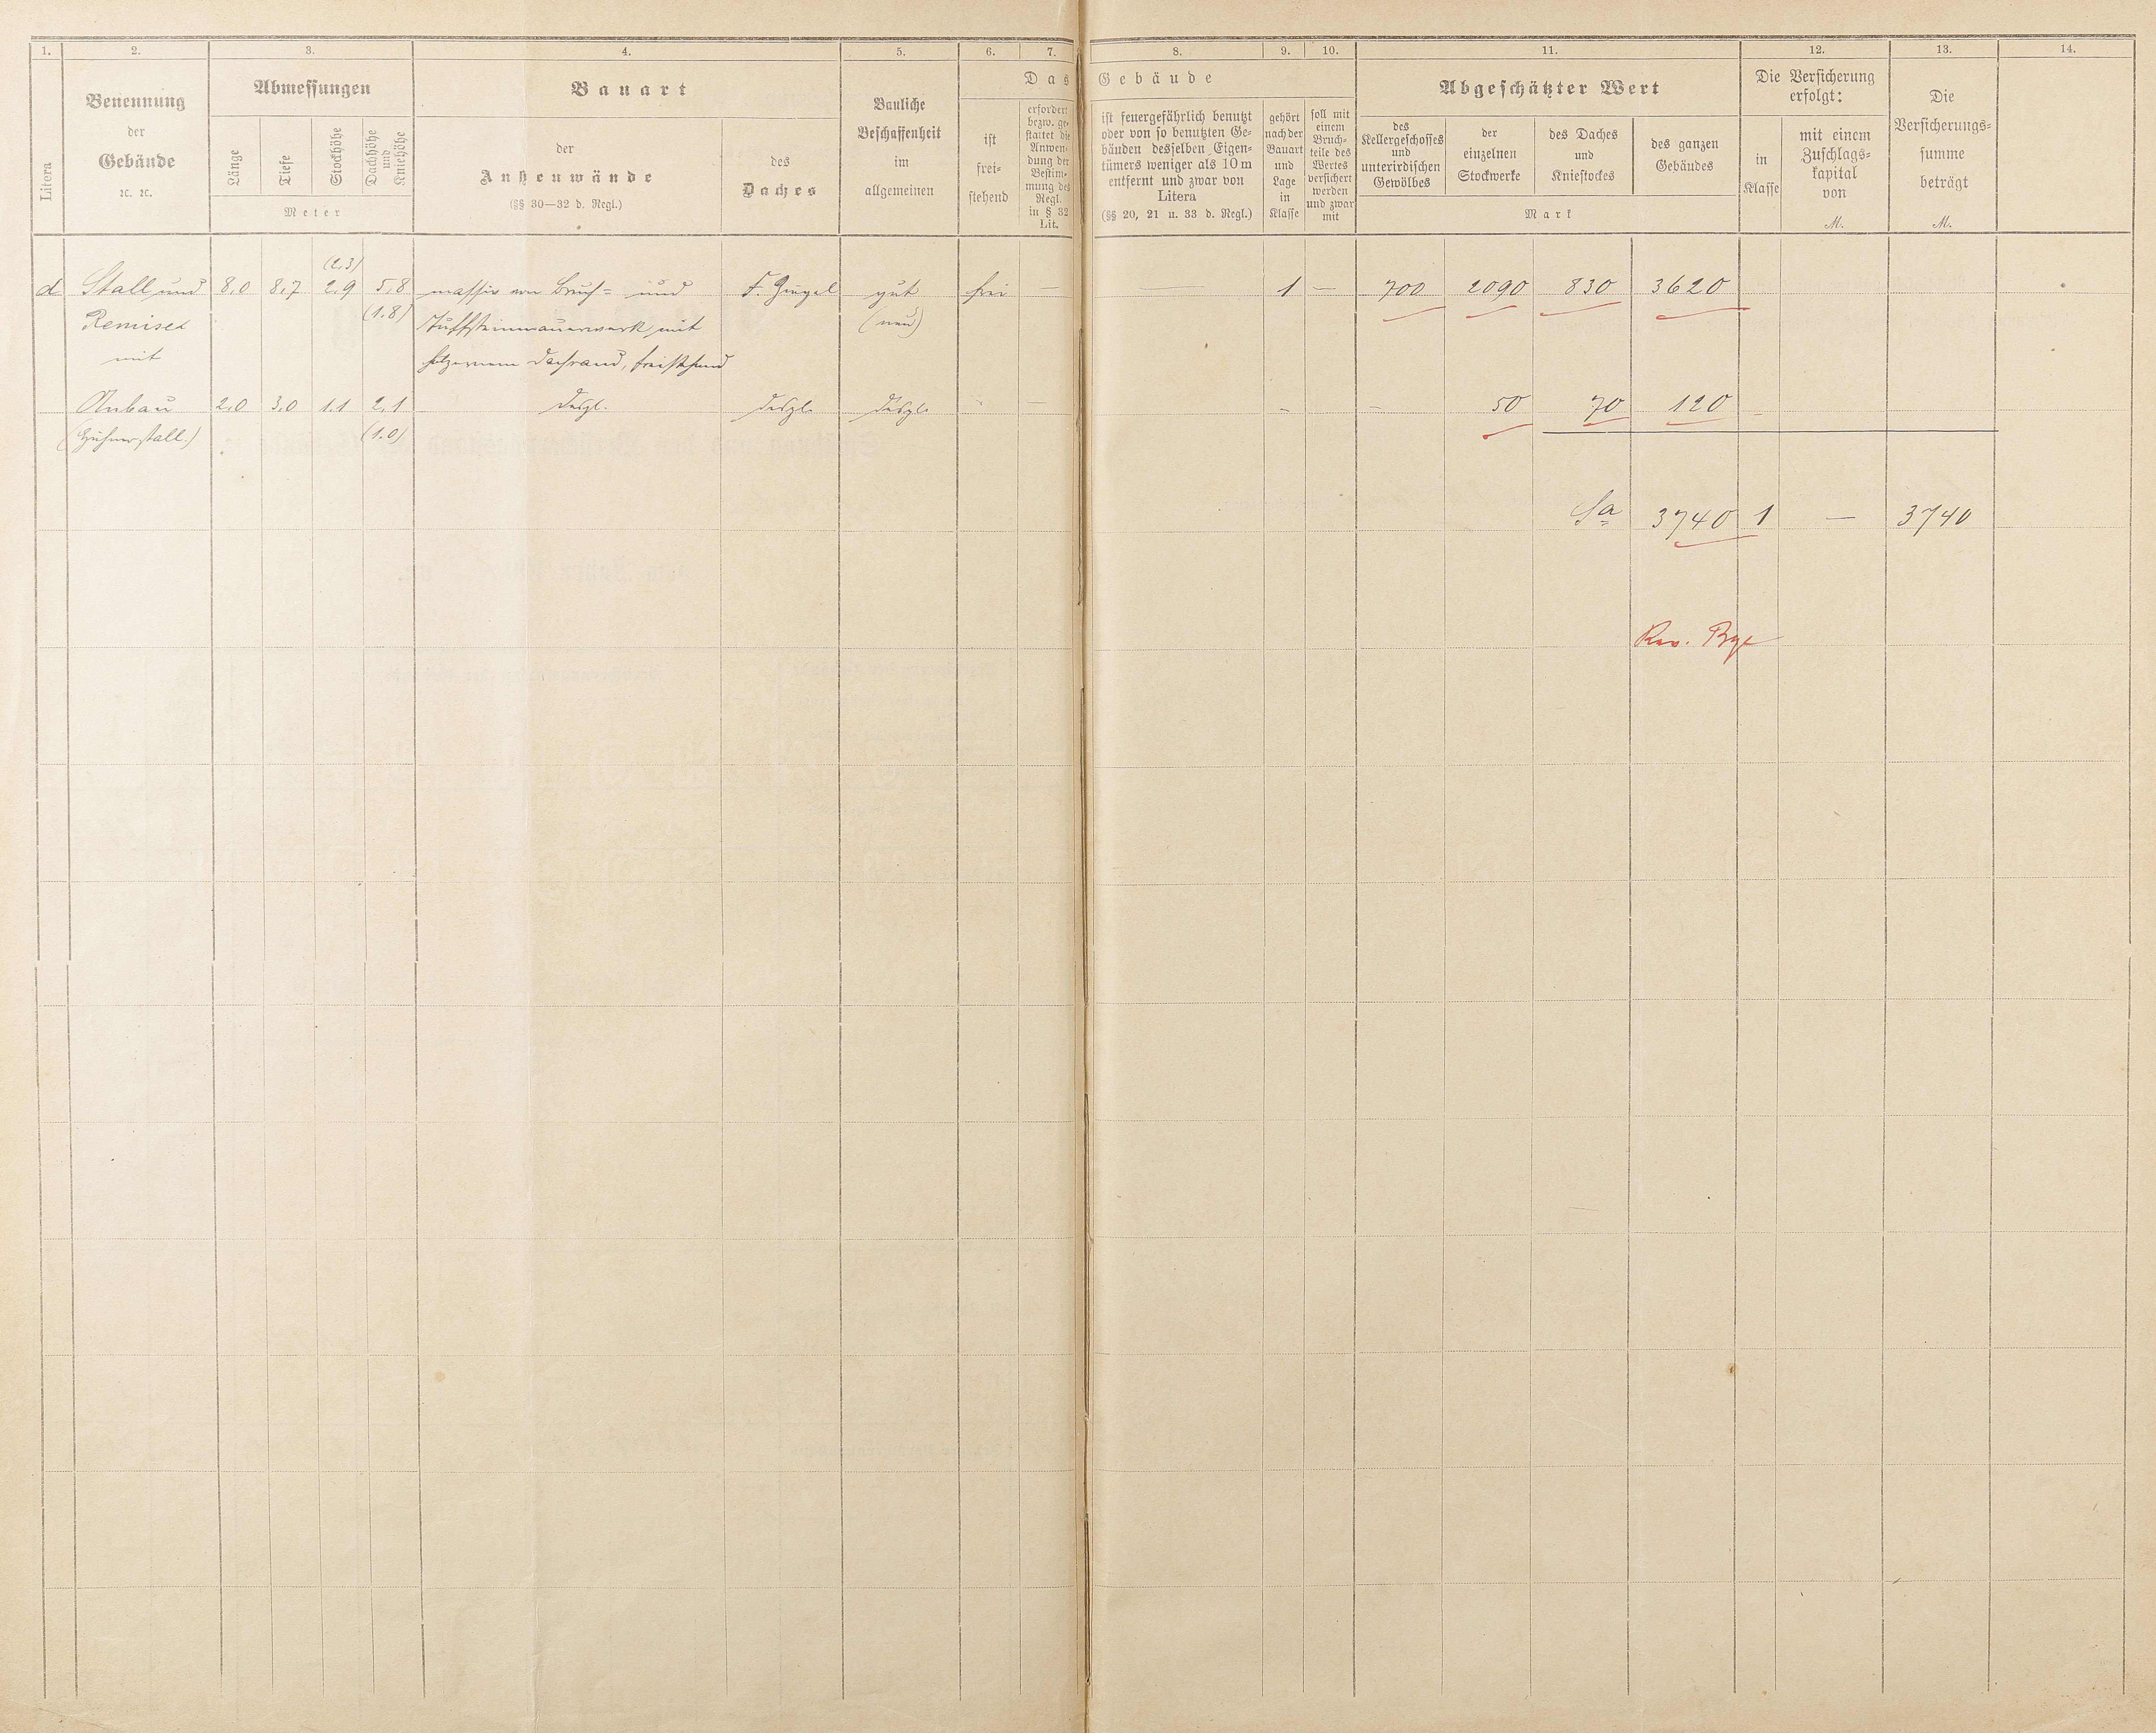 1. 2. 3. 4. 5. 6. 7. 8. 9. 10. 11. 12. 13. 14.
Litera
Benennung
der
Gebäude
ꝛc. ꝛc.
Abmessungen
Länge
Tiefe
Stockhöhe
Dachhöhe
und
Kniehöhe
Meter
Bauart
der
Außenwände
(§§ 30—32 d. Regl.)
des
Daches
Bauliche
Beschaffenheit
im
allgemeinen
Das Gebäude
ist
frei-
stehend
erfordert
bezw. ge-
stattet die
Anwen-
dung der
Bestim-
mung des
Regl.
in § 32
Lit.
ist feuergefährlich benutzt
oder von so benutzten Ge-
bäuden desselben Eigen-
tümers weniger als 10 m
entfernt und zwar von
Litera
(§§ 20, 21 u. 33 d. Regl.)
gehört
nach der
Bauart
und
Lage
in
Klasse
soll mit
einem
Bruch-
teile des
Wertes
versichert
werden
und zwar
mit
Abgeschätzter Wert
des
Kellergeschosses
und
unterirdischen
Gewölbes
der
einzelnen
Stockwerke
des Daches
und
Kniestockes
des ganzen
Gebäudes
Mark
Die Versicherung
erfolgt:
in
Klasse
mit einem
Zuschlags-
kapital
von
M.
Die
Versicherungs-
summe
beträgt
M.
(2,3)
d Stall und 8,0 8,7 2,9 5,8 massiv von Bruch- und F. Ziegel gut frei — — 1 — 700 2090 830 3620
Remise (1.8) Tuffsteinmauerwerk mit (neu)
mit hölzernem Dachrand, freistehend
Anbau 2,0 3,0 1,1 2,1 desgl. desgl. desgl. - — - - 50 70 120
(Hühnerstall.) (1.0)
Sa 3740 1 — 3740
Rev.